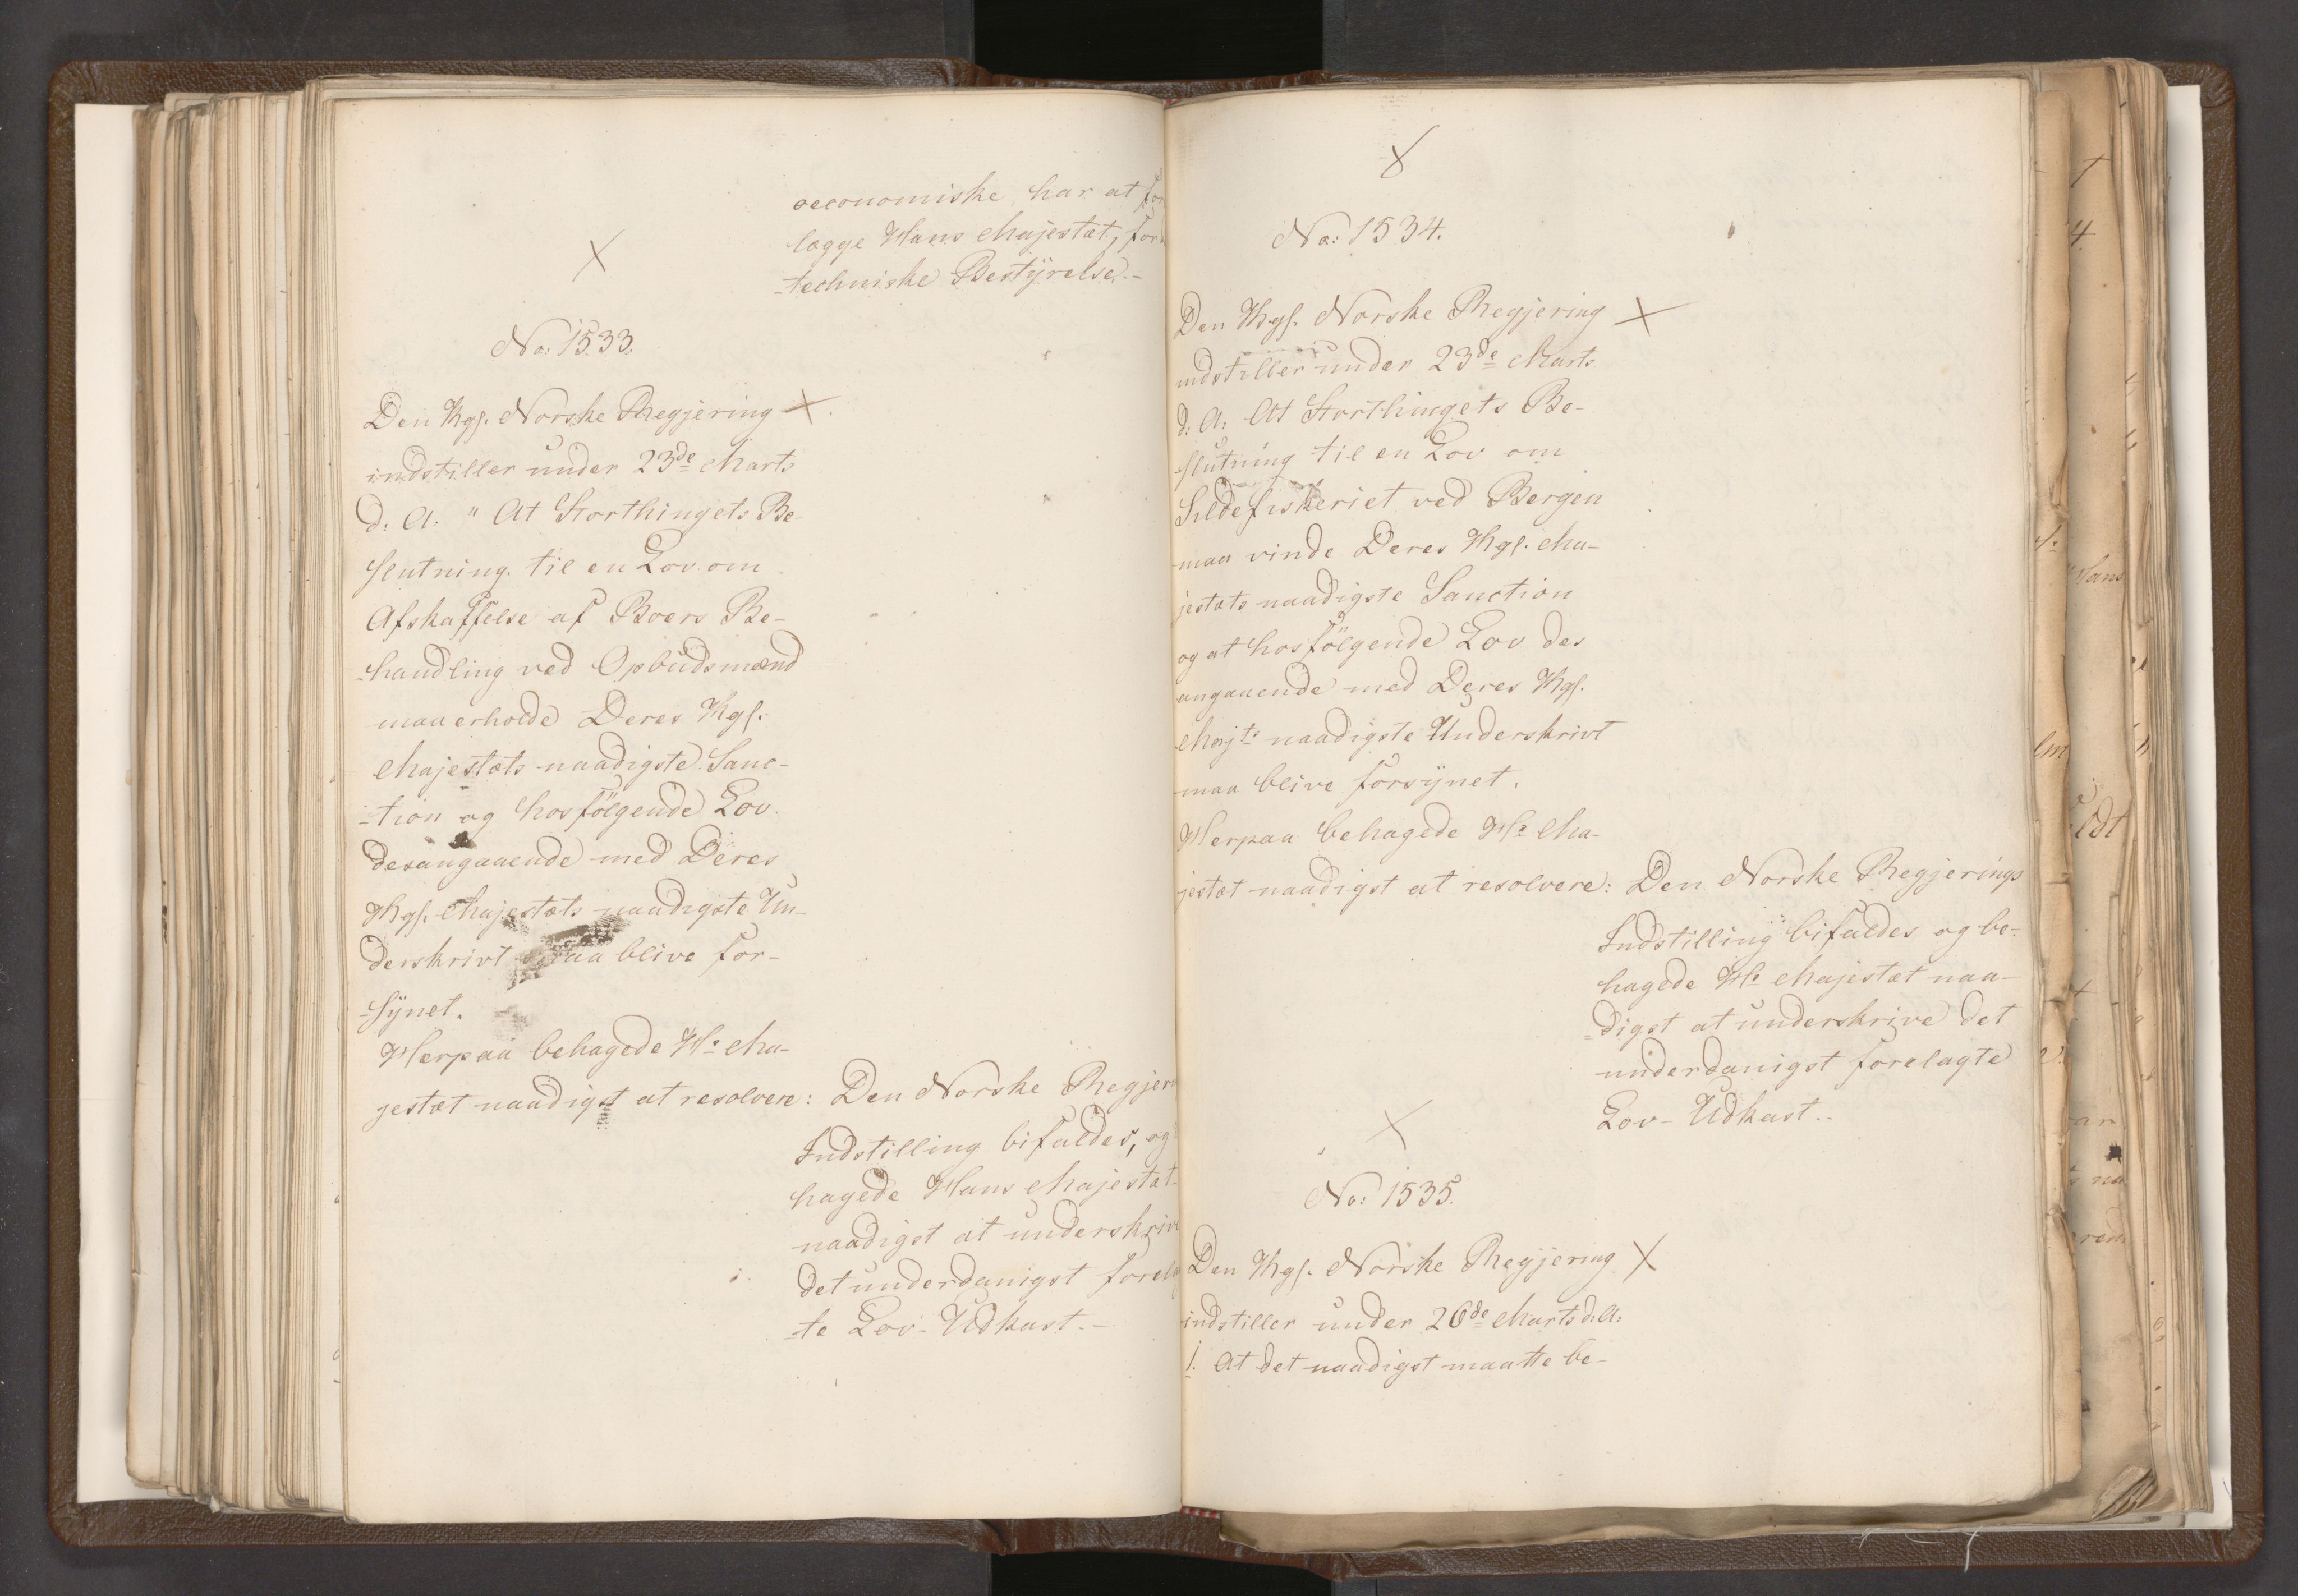 oeconomiske, har at for
lægge Hans Majestæt, for
techniske Bestÿrelse.-
No: 1533.
Den Kgl. Norske Regjering
indstiller under 23de Marts
d: A. " At Storthingets Be-
slutning til en Lov om
Afskaffelse af Boers Be-
-handling ved Opbudsmænd
maa erholde Deres Kgl.
Majestæts naadigste Sanc-
-tion og hosfölgende Lov
desangaaende med Deres
Kgl. Majestæts naadigste Un-
derskrivt maa blive for-
-sÿnet.
Herpaa behagede Hs Ma-
jestæt naadigst at resolvere: Den Norske Regjer
Indstilling bifaldes, og
hagede Hans Majestæt
naadigst at underskrive
det underdanigst forelag
-te Lov-Udkast.-
No: 1534.
Den Kgl. Norske Regjering
indstiller under 23de Marts
d: A. At Storthingets Be-
slutning til en Lov om
Sildefiskeriet ved Bergen
maa vinde Deres Kgl. Ma-
jestæts naadigste Sanction
og at hosfölgende Lov des
angaaende med Deres Kgl.
Majts naadigste Underskrivt
maa blive forsÿnet.
Herpaa behagede Hs Ma-
jestæt naadigst at resolvere: Den Norske Regjerings
Indstilling bifaldes og be-
hagede Hs Majestæt naa-
digst at underskrive det
underdanigst forelagte
Lov-Udkast.-
No: 1535.
Den Kgl. Norske Regjering
indstiller under 26de Marts d: A:
1. At det naadigst maatte be-